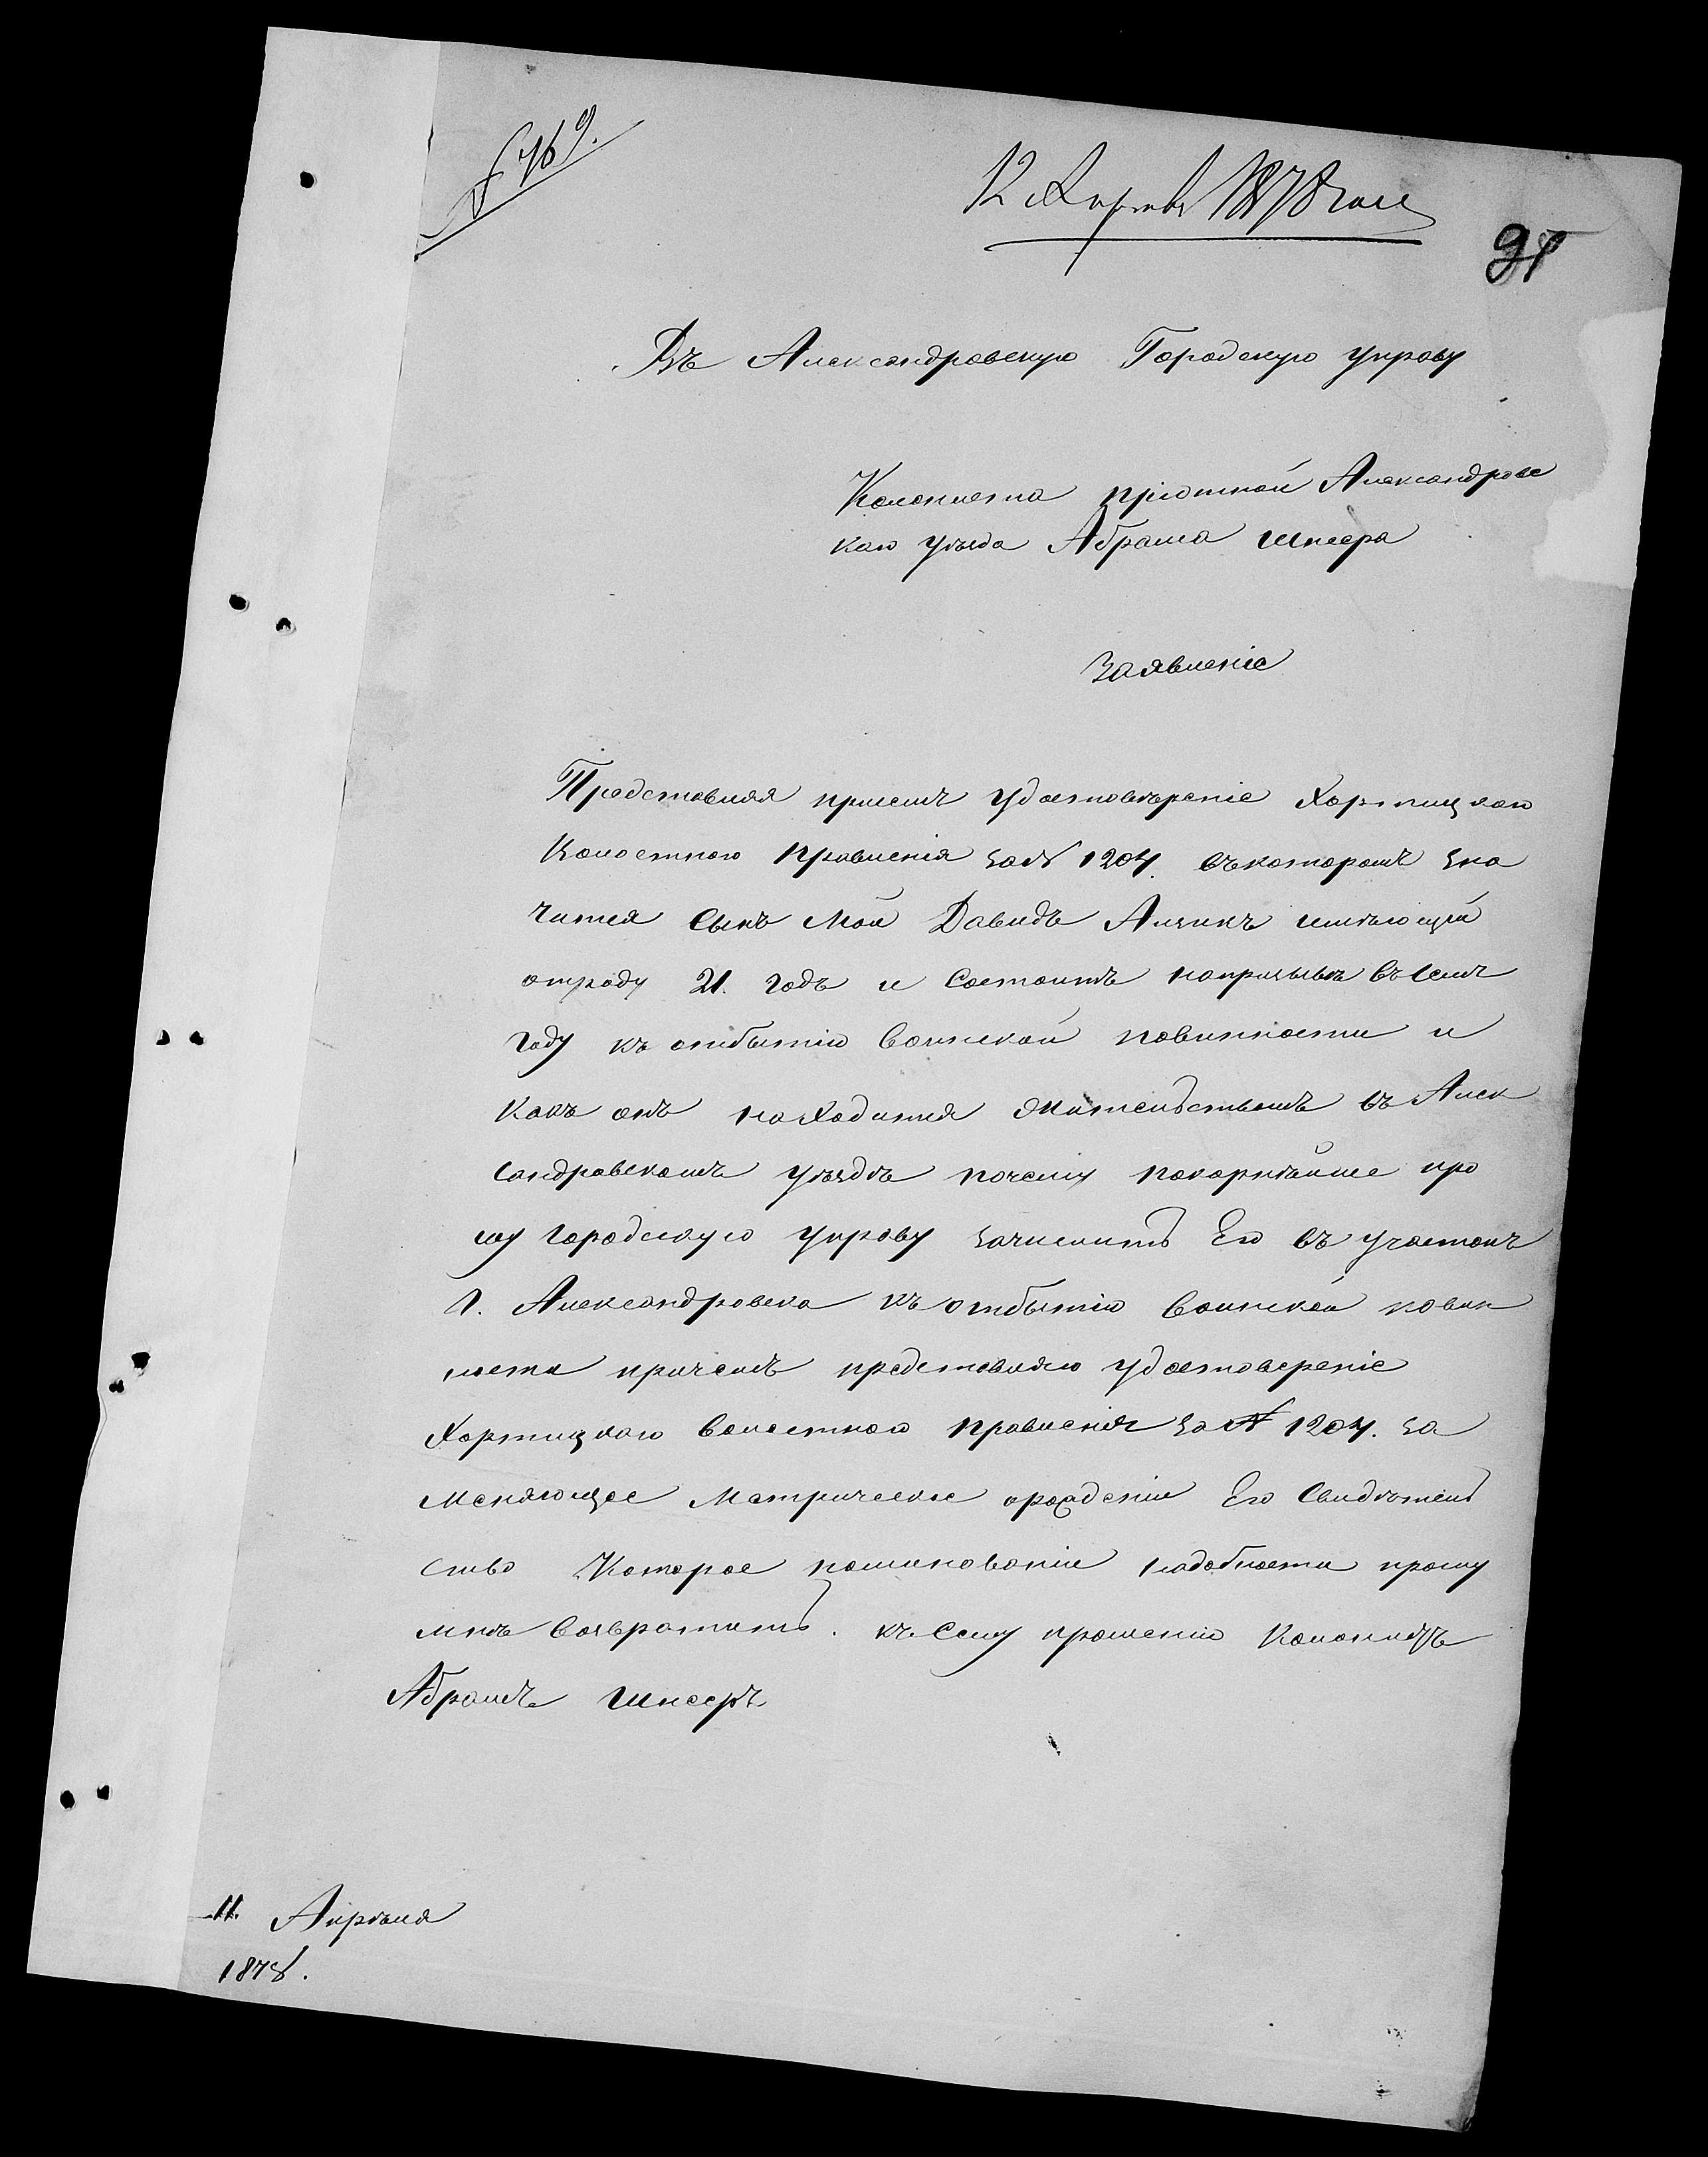 № 769.
12 Апрѣля 1878 года
91
Въ Александровскую Городскую управу
Колониста пріютной Александровс
каго уѣзда Абрама шнеера
Заявленіе
Представляя присемъ удостовѣреніе Хортицкаго
Волостного Правленія за № 1204. въкоторомъ зна
чится Сынъ Мой Давидъ Айзикъ имѣющій
отроду 21. годъ и Состоитъ напризывѣ въ Семъ
году къ отбытію воинской повинности и
Какъ онъ находится Жительствомъ въ Алек
сандровскомъ уѣздѣ почему покорнѣйше про
шу городскую управу зачислить Его въ участокъ
Г. Александровска къ отбытію воинской повин
ности причемъ представляю удостовереніе
Хортицкаго волостнаго Правленія за № 1204. за
меняющее Метрическое орожденіи Его Свидѣтель
ство Которое поминованіи надобности прошу
мнѣ возвратить. къ Сему прошенію Колонистъ
Абрамъ шнееръ
11. Апрѣля
1878.